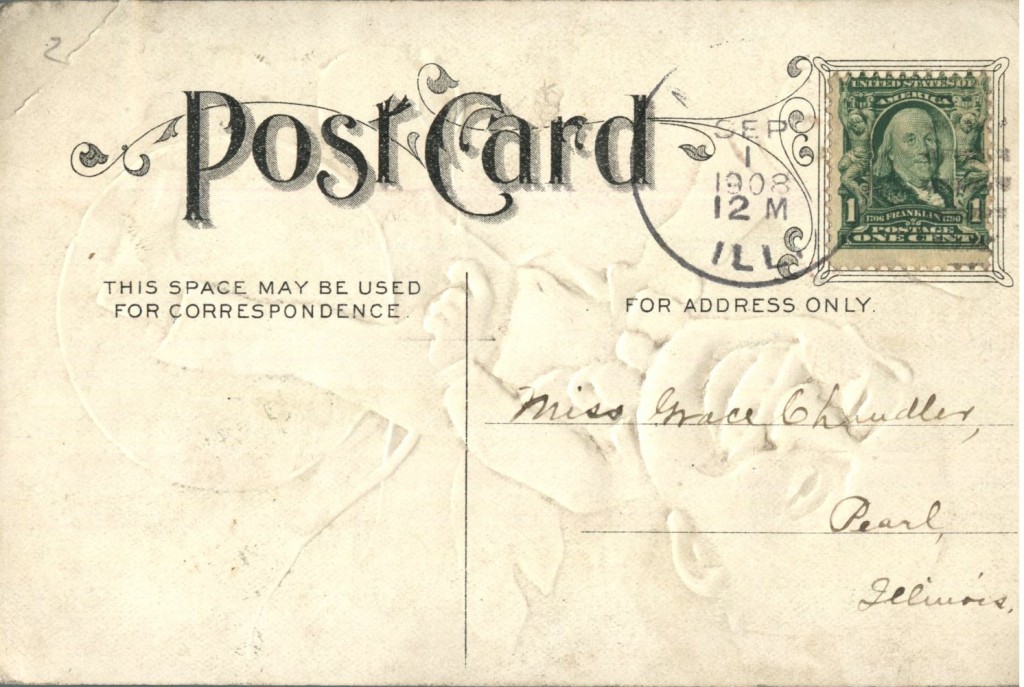 2
Post Card
SEP
1
1908
12 M
ILL
UNITED STATES OF
AMERICA
1 1706 FRANKLIN 1790 1
POSTAGE
ONE CENT
THIS SPACE MAY BE USED
FOR CORRESPONDENCE.
FOR ADDRESS ONLY.
Miss Grace Chandler,
Pearl,
Illinois.